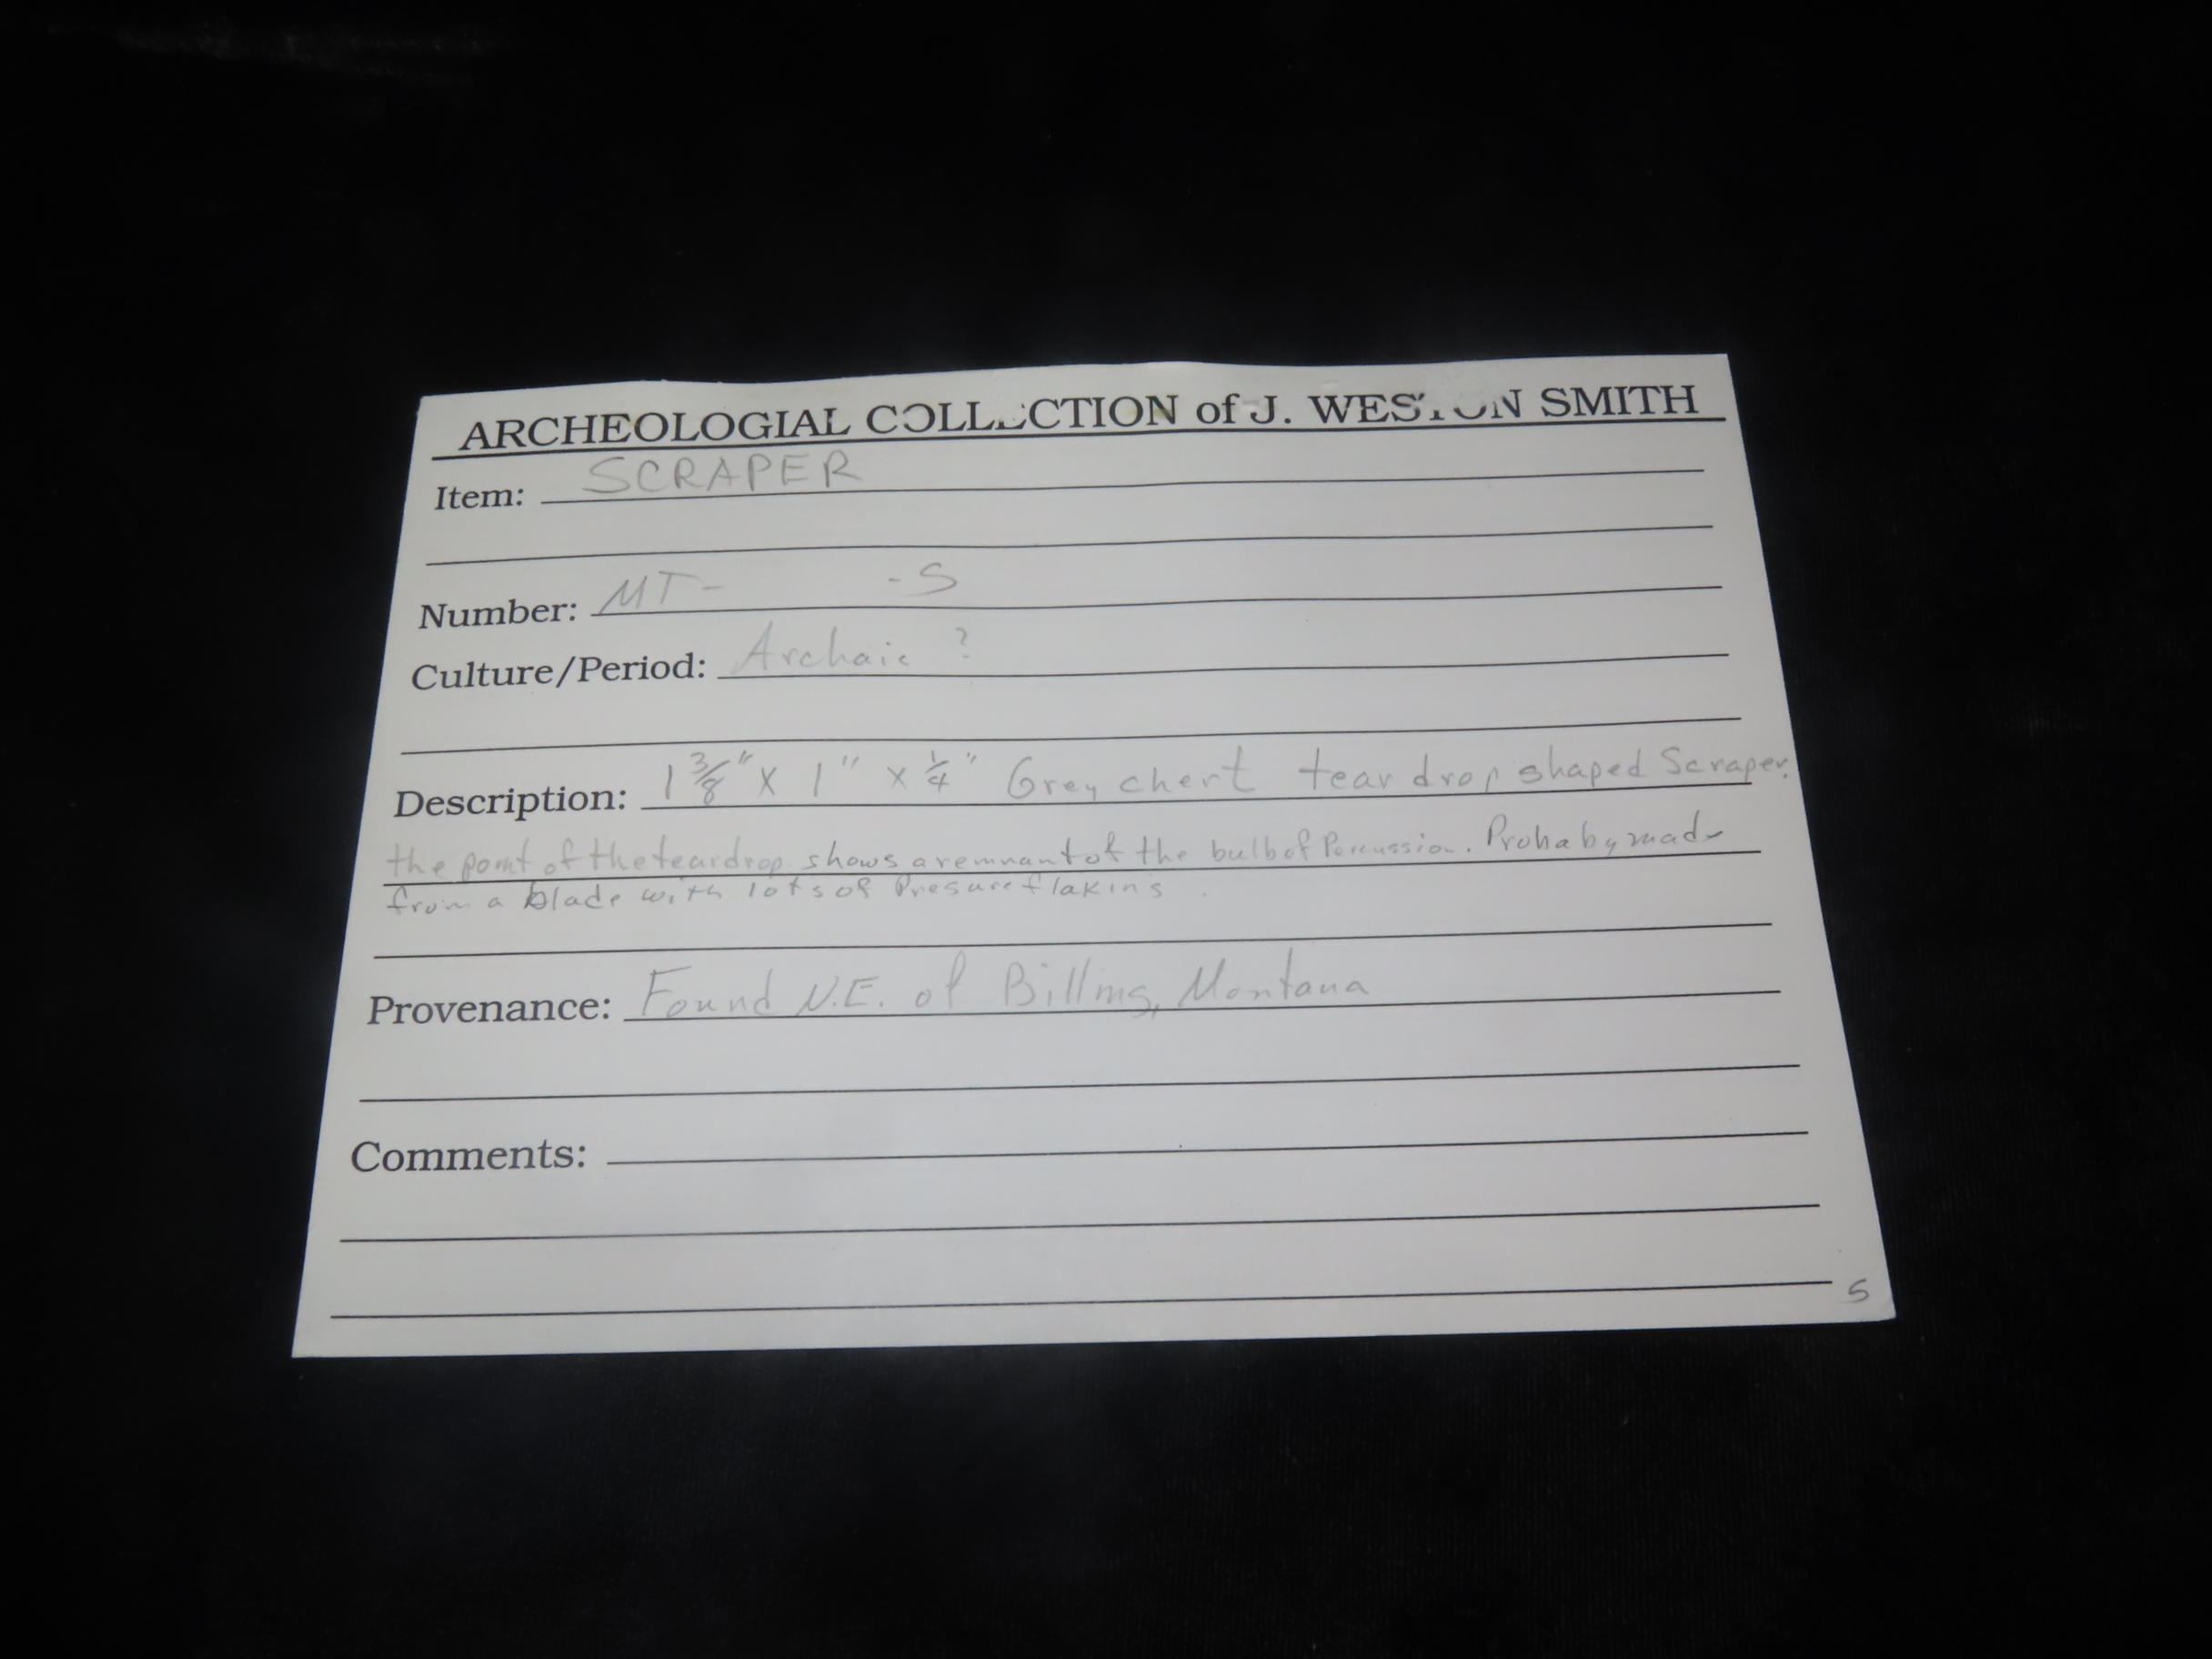 ARCHEOLOGIAL COLLECTION of J. WESTON SMITH
Item: SCRAPER
Number: MT- -S
Culture/Period: Archaic ?
Description: 1 3/8" x 1" x 1/4" Grey chert tear drop shaped Scraper.
the point of the teardrop shows a remnant of the bulb of Percussion. Probaby made
from a blade with lots of Presure flaking.
Provenance: Found N.E. of Billings, Montana
Comments:
S